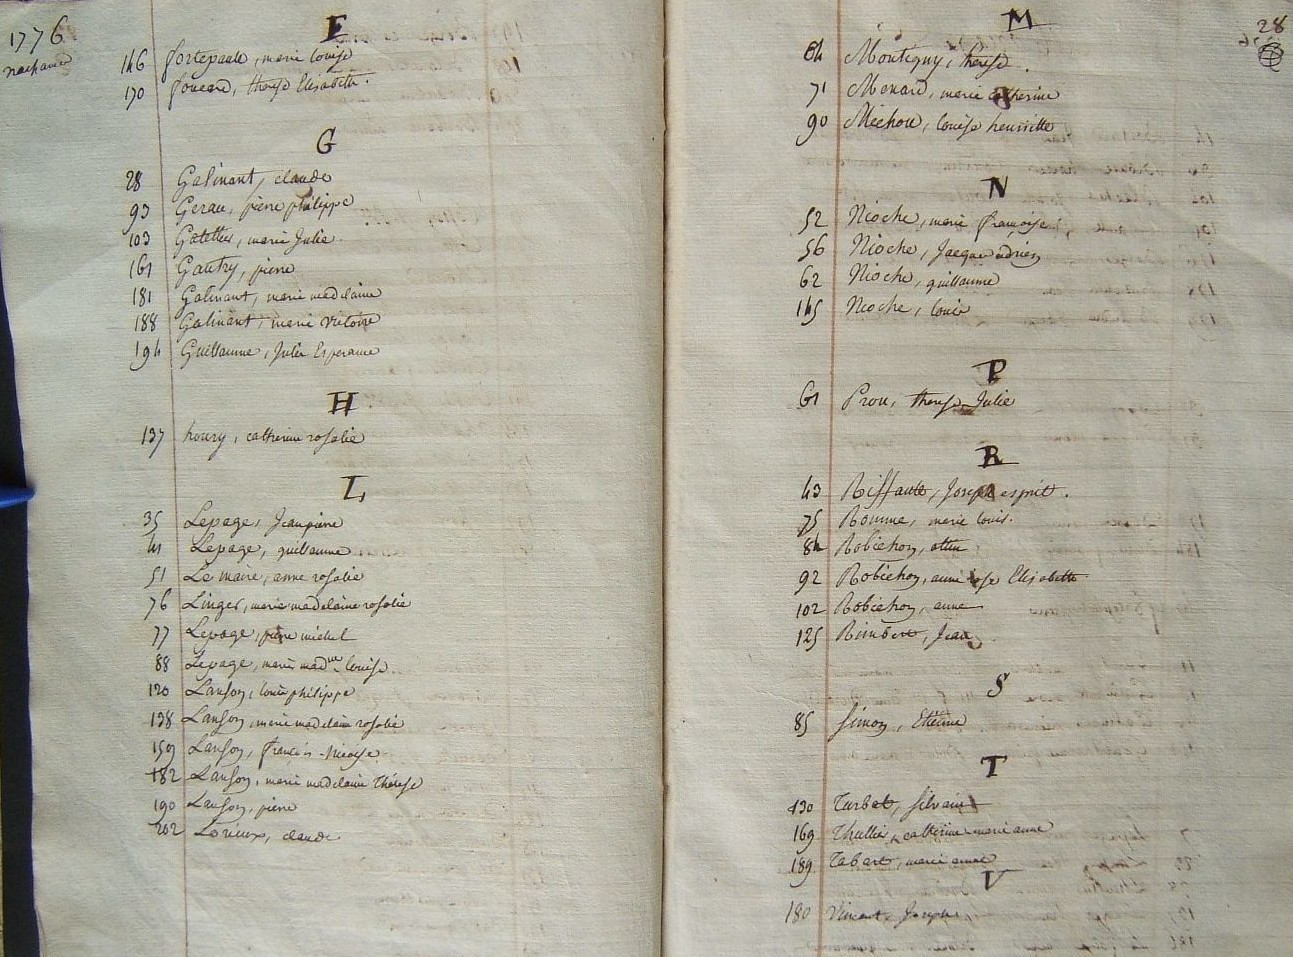 1776
F
146 fortepaule, marie louise
170 foucard, therese Elisabeth.
G
28 Galinant, claude
93 Gerau, pierre philippe
103 Gatellier, marie Julie
161 Gautry, pierre
181 Galinant, marie madelaine
188 Galinant, marie victoire
194 Guillaume, Julie Esperance
H
137 houry, catherine rosalie
L
35 Lepage, Jean pierre
41 Lepage, guillaume
51 Le maire, anne rosalie
76 Linger, marie madelaine rosalie
77 Lepage, pierre michel
88 Lepage, marie mad^ne louise
120 Lanson, louis philippe
138 Lanson, marie madelaine rosalie
159 Lanson, francois
182 Lanson, marie madelaine Thérese
190 Lanson, pierre
202 Lorieux, claude
28
M
64 Montigny, therese.
71 Menard, marie catherine
90 Mechou, louise henriette
N
52 Nioche, marie françoise
56 Nioche, Jacque adrien
62 Nioche, guillaume
145 Nioche, louis
P
61 Prou, therese Julie
R
43 Riffault, Joseph esprit.
75 Romme, marie louis.
84 Robichon,
92 Robichon, anne rose Elisabeth
102 Robichon, anne
125 Rimbert, Jean
S
85 Simon, Etienne
T
130 Turbat, silvain
169 Thullier, catherine marie anne
189 Tabart, marie anne
V
180 Vincent, Joseph